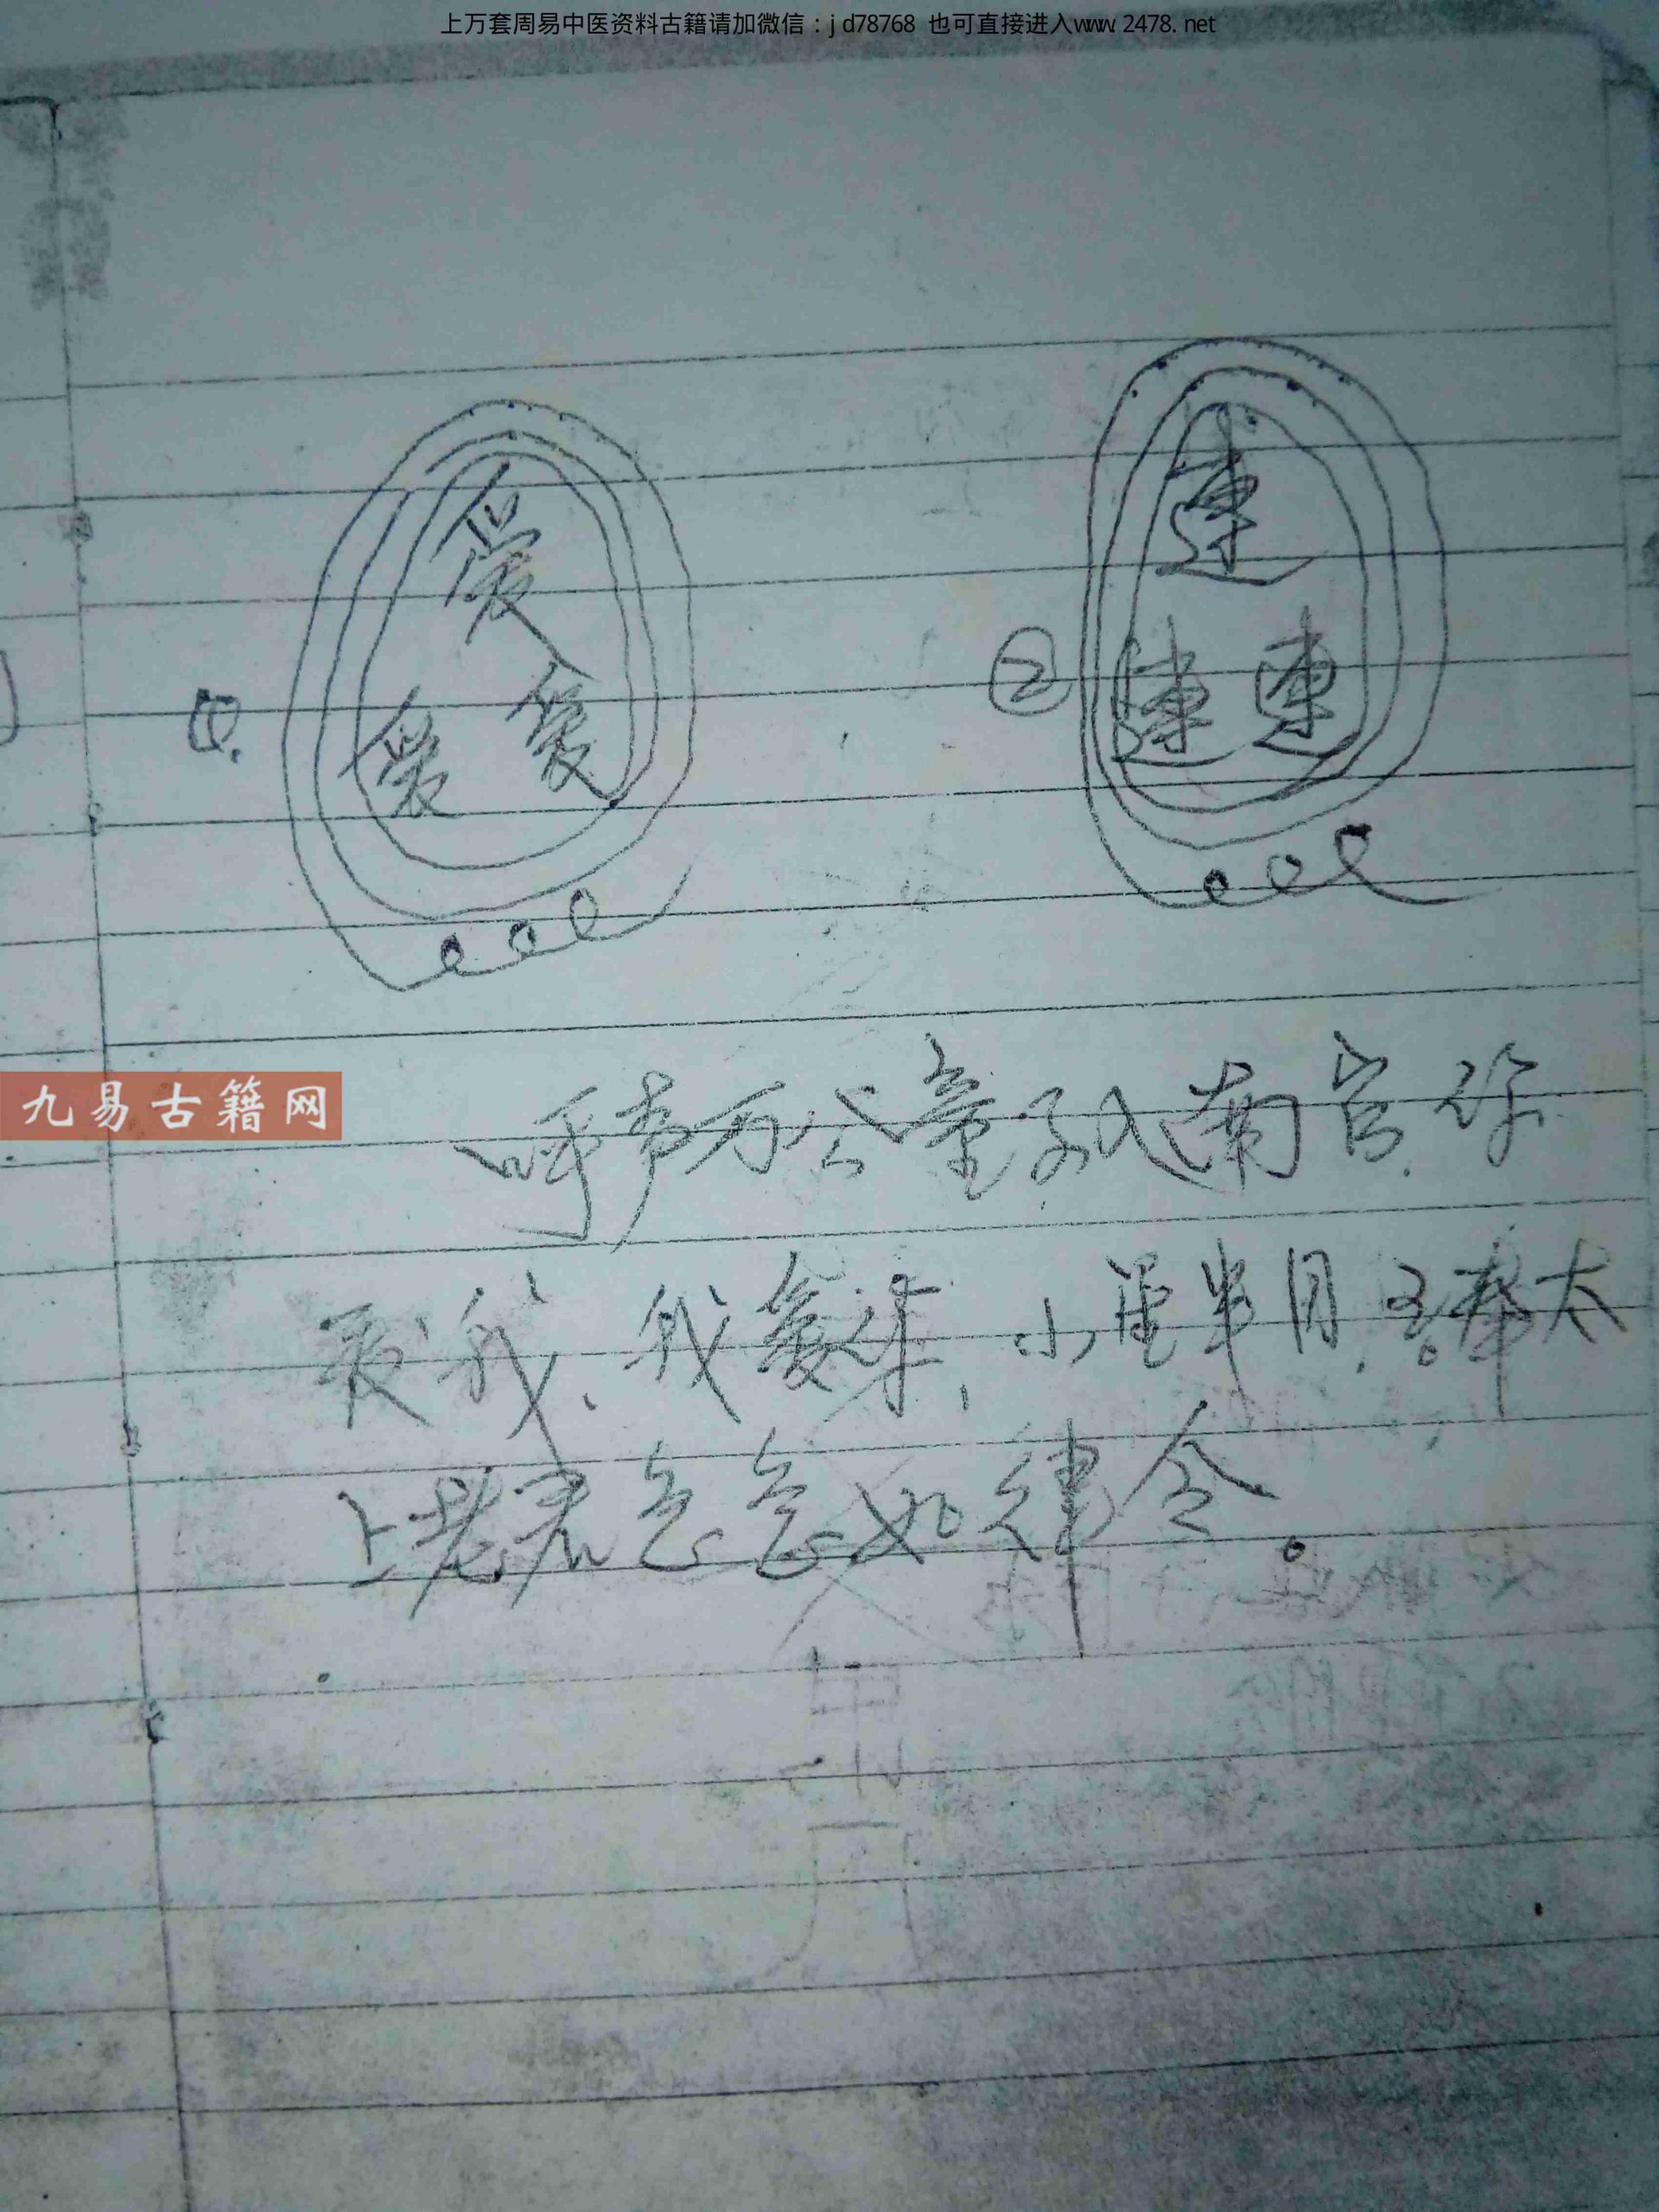 上万套周易中医资料古籍请加微信：jd78768 也可直接进入www.2478.net
①
爱
爱 爱
②
連
連 連
九易古籍网
呼声万公童子入南宫.你
爱我、我爱你,小星半月.吾奉太
上老君急急如律令。